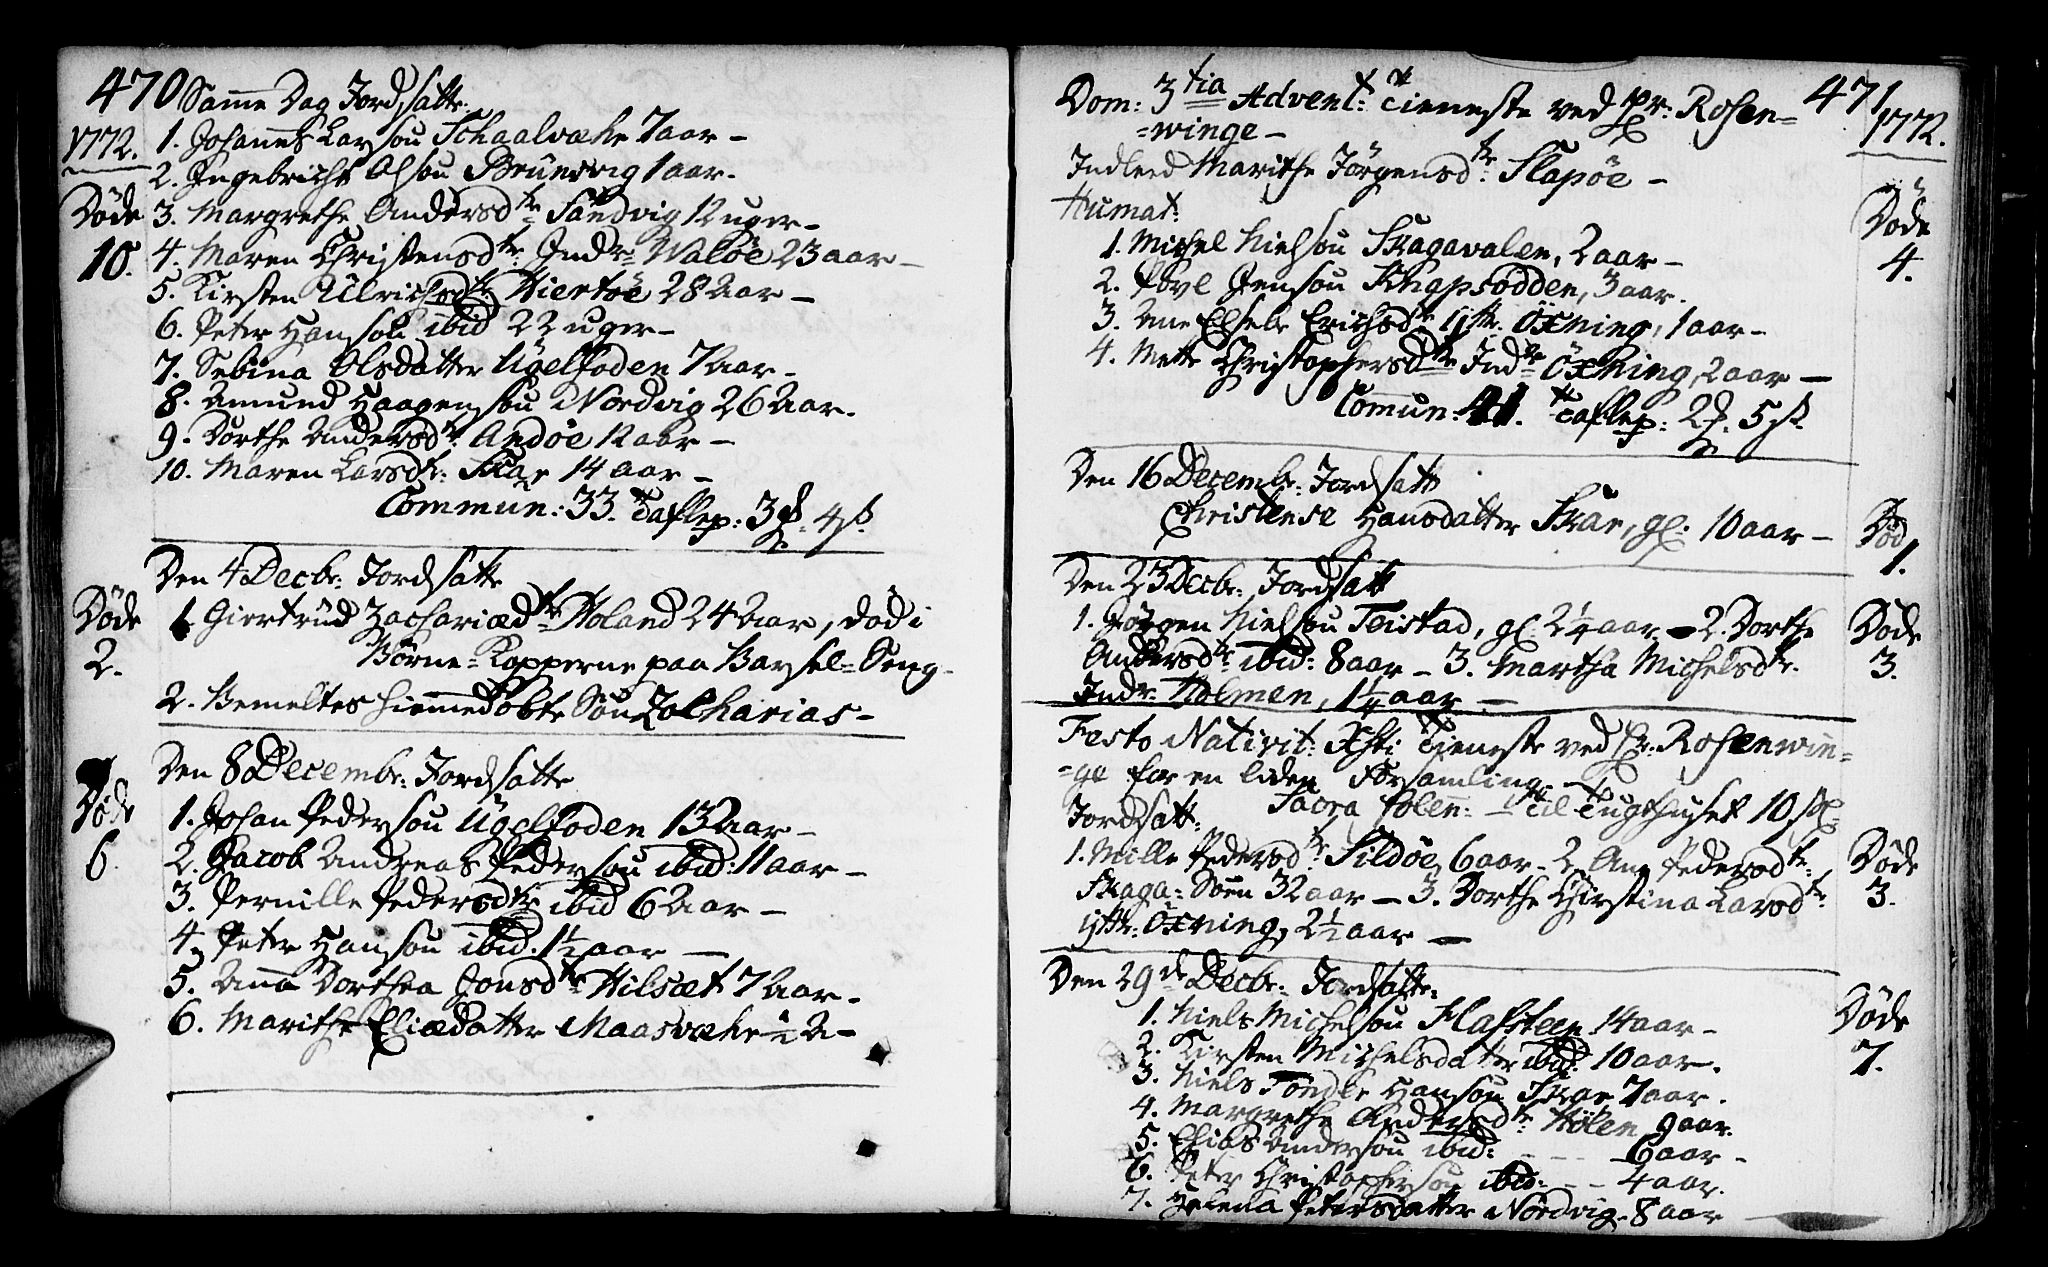 470 Samme Dag Jordsatte.
1772.
1. Johannes Larsøn Schaalvæhr 7 aar –
2. Ingebricht Olsøn Brunsvig 1 aar.
Døde
10.
3. Margrethe Andersdtr Sandvig 12 uger –
4. Maren Christensdtr: Indr: Waløe 23 aar –
5. Kirsten Ulrichsdtr: Hiertøe 28 Aar –
6. Peter Hansøn ibid 22 uger –
7. Sebina Olsdatter Ugelfoden 7 Aar –
8. Amund Haagensøn Nordvig 26 Aar.
9. Dorthe Andersdtr: Andøe 12 aar –
10. Maren Larsdtr: Skar 14 aar –
Commun: 33. Taflep: 3 4 ß
Den 4 Decbr: Jordsatte
Døde
2.
1. Giertrud Zachariædtr Holand 24 Aar, død i
Børne-Kopperne paa Barsel-Seng –
2. Bemeltes hiemmedøbte Søn Zacharias –
Den 8 Decembr: Jordsatte
Døde
6.
1. Johan Pedersøn Ugelfoden 13 Aar –
2. Jacob Andreas Pedersøn ibid: 11 aar –
3. Pernille Pedersdtr ibid 6 Aar –
4. Peter Hansøn ibid. 1½ aar –
5. Anna Dorthea Jonsdtr Hilsæt 7 Aar.
6. Marithe Eliædatter Maasvæhr ½ A –
Dom: 3tia Advent: Tieneste ved Hr: Rosen=
=winge –
471
1772.
Indleed Marithe Jørgensdtr: Slapøe –
Humat:
Døde
4.
1. Michel Nielsøn Skagavalen, 2 aar –
2. Povl Jensøn Knapsodden, 3 aar.
3. Ane Elsebe Erichsdtr ijttr. Öxning, 1 aar –
4. Mette Christophersdtr Indr Öxning, 2 aar –
Commun: 41. Taflep: 2 5 ß
Den 16 Decembr: Jordsatt
Christense Hansdatter Skar, gl. 10 aar –
Død
1.
Den 23 Decbr: Jordsatt
1. Jørgen Nielsøn Teistad, gl: 2¼ aar – 2. Dorthe
Andersdtr ibid: 8 aar – 3. Martha Michelsdtr.
Indr: Holmen, 1¼ aar –
Døde
3.
Festo Nativit: Xsti Tieneste ved Hr: Rosenwin=
=ge for en liden Forsamling –
Sacra solen: – Til Tugthuset 10 ß
Jordsatt:
1. Mille Pedersdtr Sildøe, 6 aar – 2. Ane Pedersdtr:
Skaga: Søen 32 aar – 3. Dorthe Christina Larsdtr:
ijttr: Öxning, 2½ aar –
Døde
3.
Den 29de Decbr: Jordsatte:
Døde
7.
1. Niels Michelsøn Flafsteen 14 aar –
2. Kirsten Michelsdatter ibid: 10 aar.
3. Niels Hansøn Skar 7 aar.
4. Margrethe Andersdtr: Hølen 9 aar.
5. Elias Andersøn ibid: – – – 6 aar –
6. Peter Christophersøn ibid: – – 4 aar.
7. Helena Petersdatter Nordvig. 8 aar